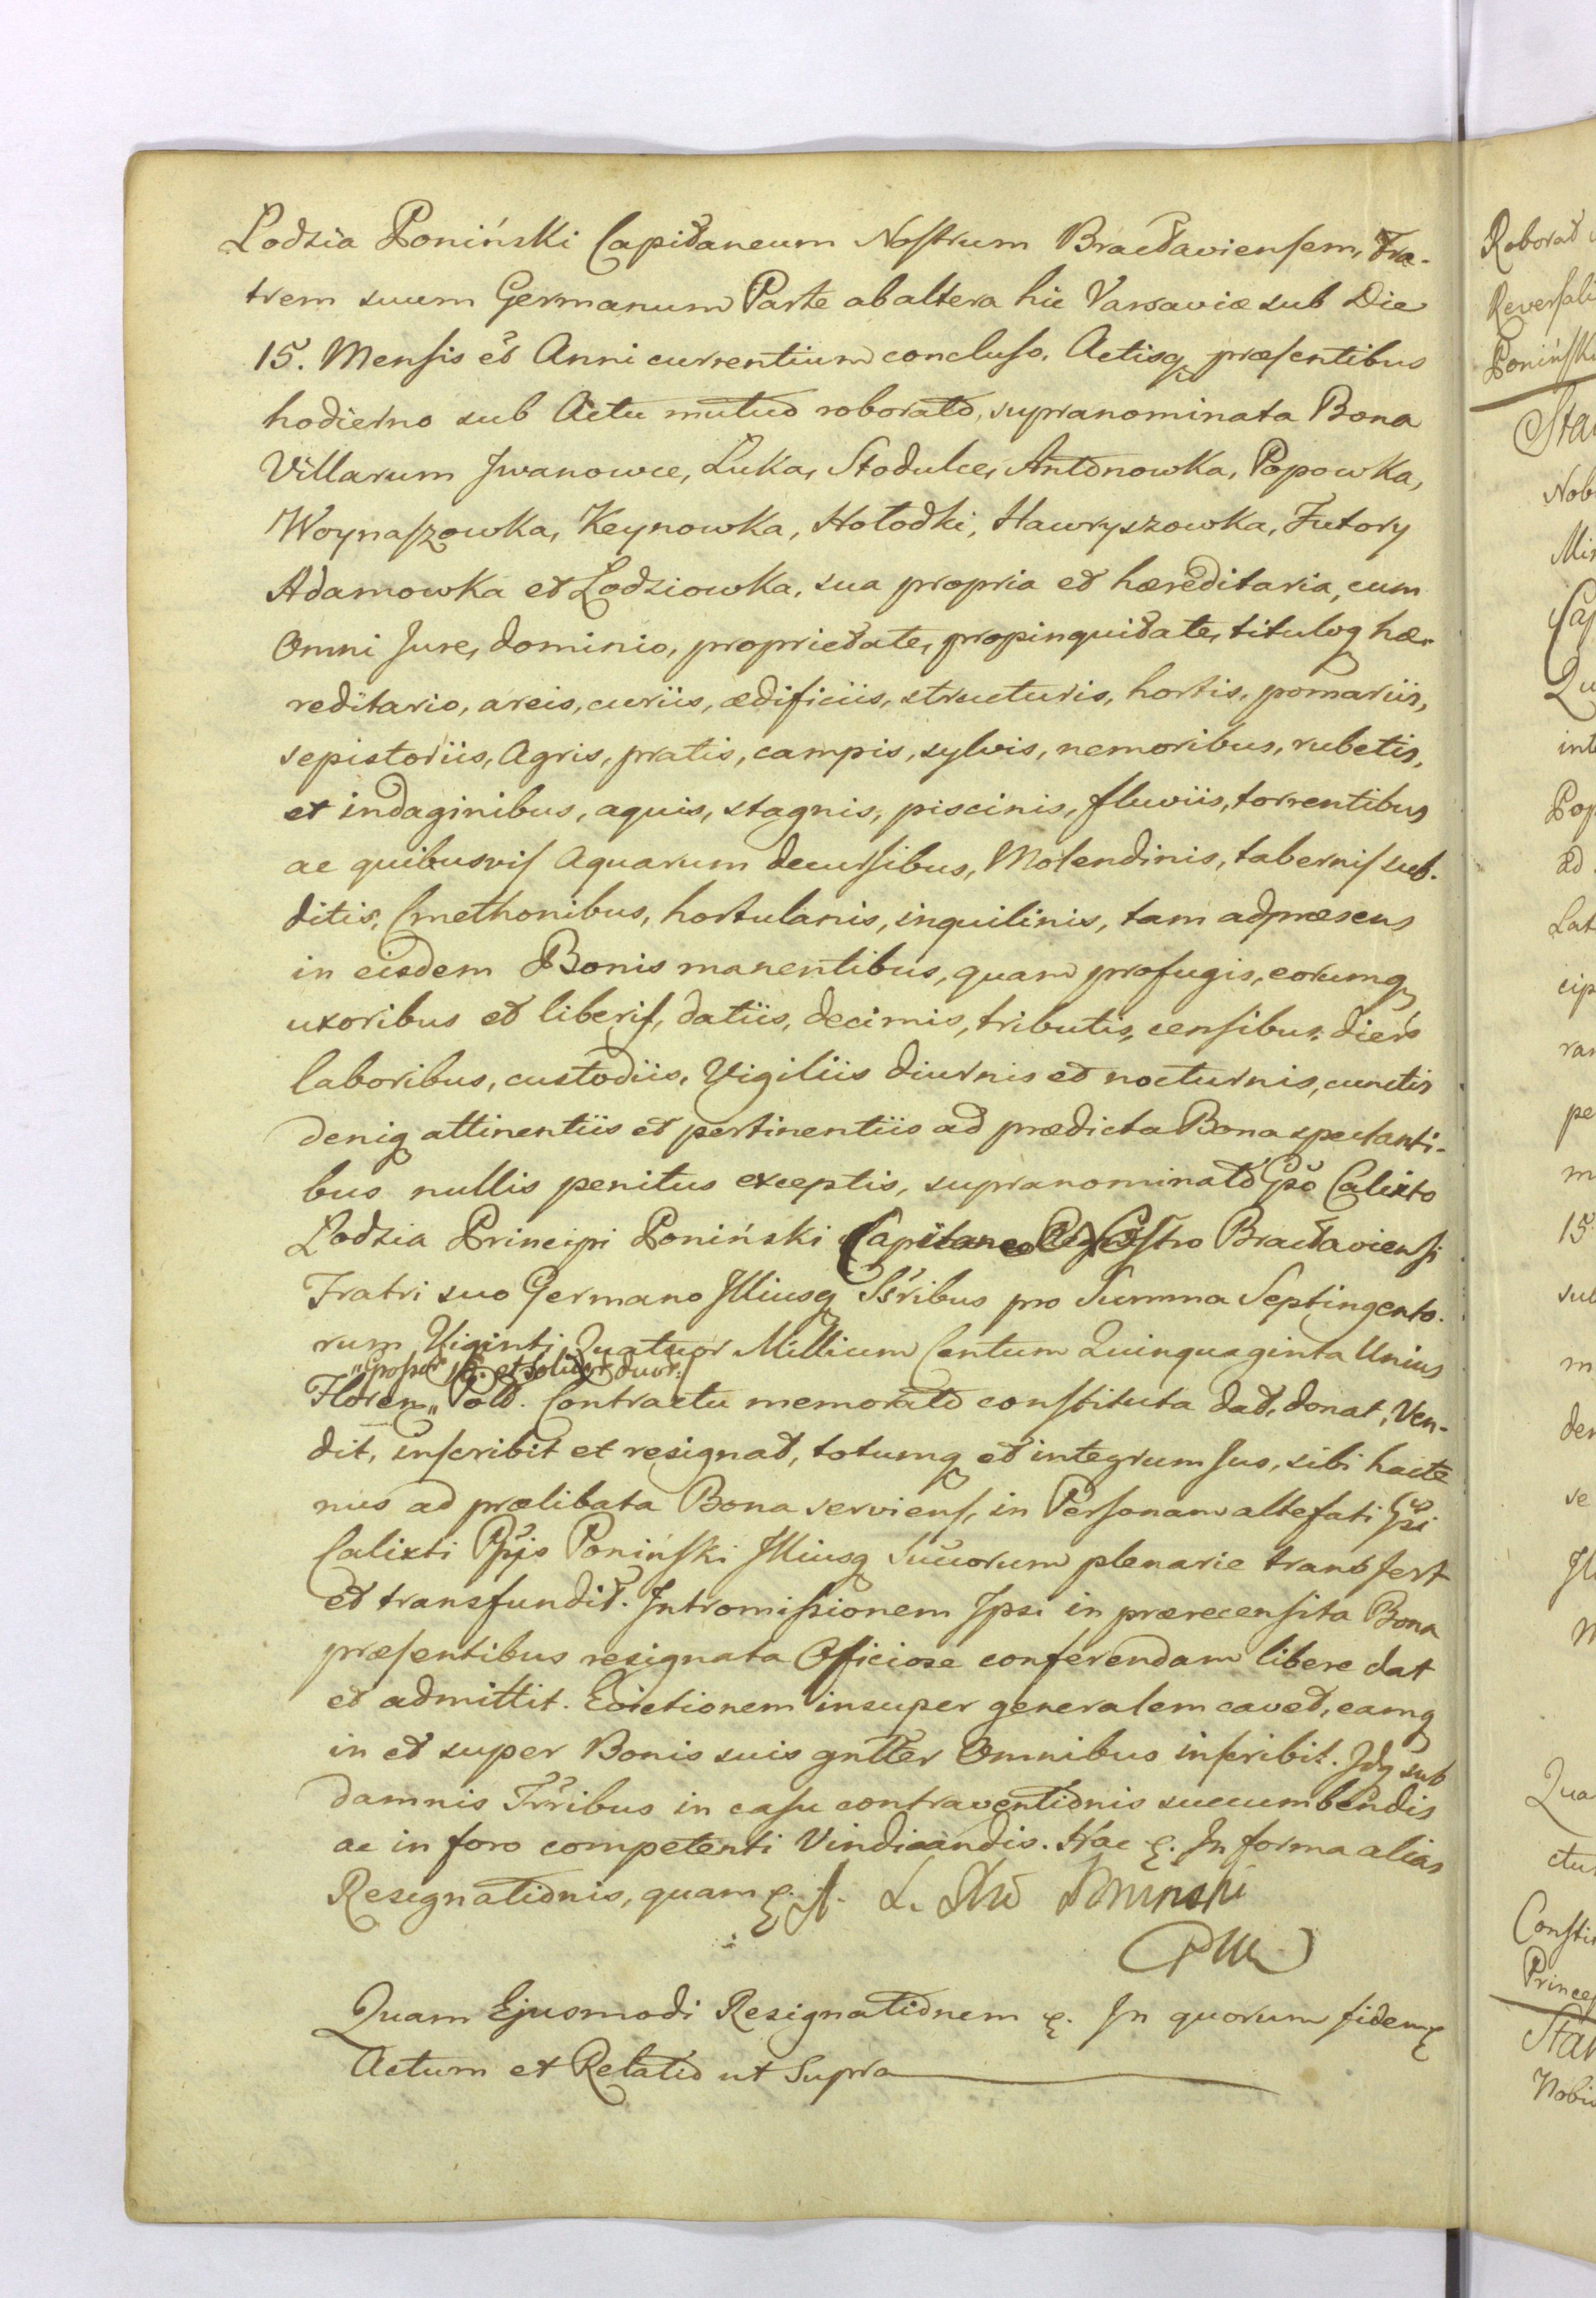 Lodzia Poniński Capitaneum Nostrum Bracłaviensem, Fra-
trem suum Germanum Parte ab altera hic Varsaviæ sub Die
15. Mensis et Anni currentium concluso, Actisq præsentibus
hodierno sub Actu mutuo roborato, supranominata Bona
Villarum Iwanowce, Luka, Stodulce, Antonowka, Popowka,
Woynaszowka, Keynowka, Hołodki, Hawryszowka, Futory
Adamowka et Lodziowka, sua propria et hæreditaria, cum
Omni Jure, dominio, proprietate, propinquitate, tituloq hæ-
reditario, areis, curiis, ædificiis, structuris, hortis, pomariis,
sepistoriis, Agris, pratis, campis, sylvis, nemoribus, rubetis,
et indaginibus, aquis, stagnis, piscinis, fluviis, torrentibus
ac quibusvis Aquarum decursibus, Molendinis, tabernis sub-
ditis, Cmethonibus, hortulanis, inquilinis, tam adpræsens
in eisdem Bonis manentibus, quam profugis, eorumq
uxoribus et liberis, datiis, decimis, tributis, censibus, diers
laboribus, custodiis, Vigiliis diurnis et nocturnis, cunctis
deniq attinentiis et pertinentiis ad prædicta Bona spectanti-
bus nullis penitus exceptis, supranominato Gso Calixto
Lodzia Principi Poniński Capitaneo Nostro Bracłaviensi
Fratri suo Germano Illiusq Ssribus pro Summa Septingento-
rum Viginti Quatuor Millium Centum Quinquaginta Unius
et solidor duor:
Floren Pold. Contractu memorato constituta dat, donat, Ven-
dit, inscribit et resignat, totumq et integrum Jus, sibi hacte
nus ad prælibata Bona serviens, in Personam altefati Gsi
Calixti Ppis Poniński Illiusq Suuorum plenarie transfert
et transfundit. Intromissionem Ipsi in prærecensita Bona
præsentibus resignata Officiose conferendam libere dat
et admittit. Evictionem insuper generalem cavet, eamq
in et super Bonis suis gntter Omnibus inscribit. Idq sub
damnis Trribus in casu contraventionis succumbendis
ac in foro competenti Vindicandis. Hac &. In forma alias
Resignationis, quam &. A. L. Poninski
Quam Ejusmodi Resignationem &. In quorum fidem &
Actum et Relatio ut Supra